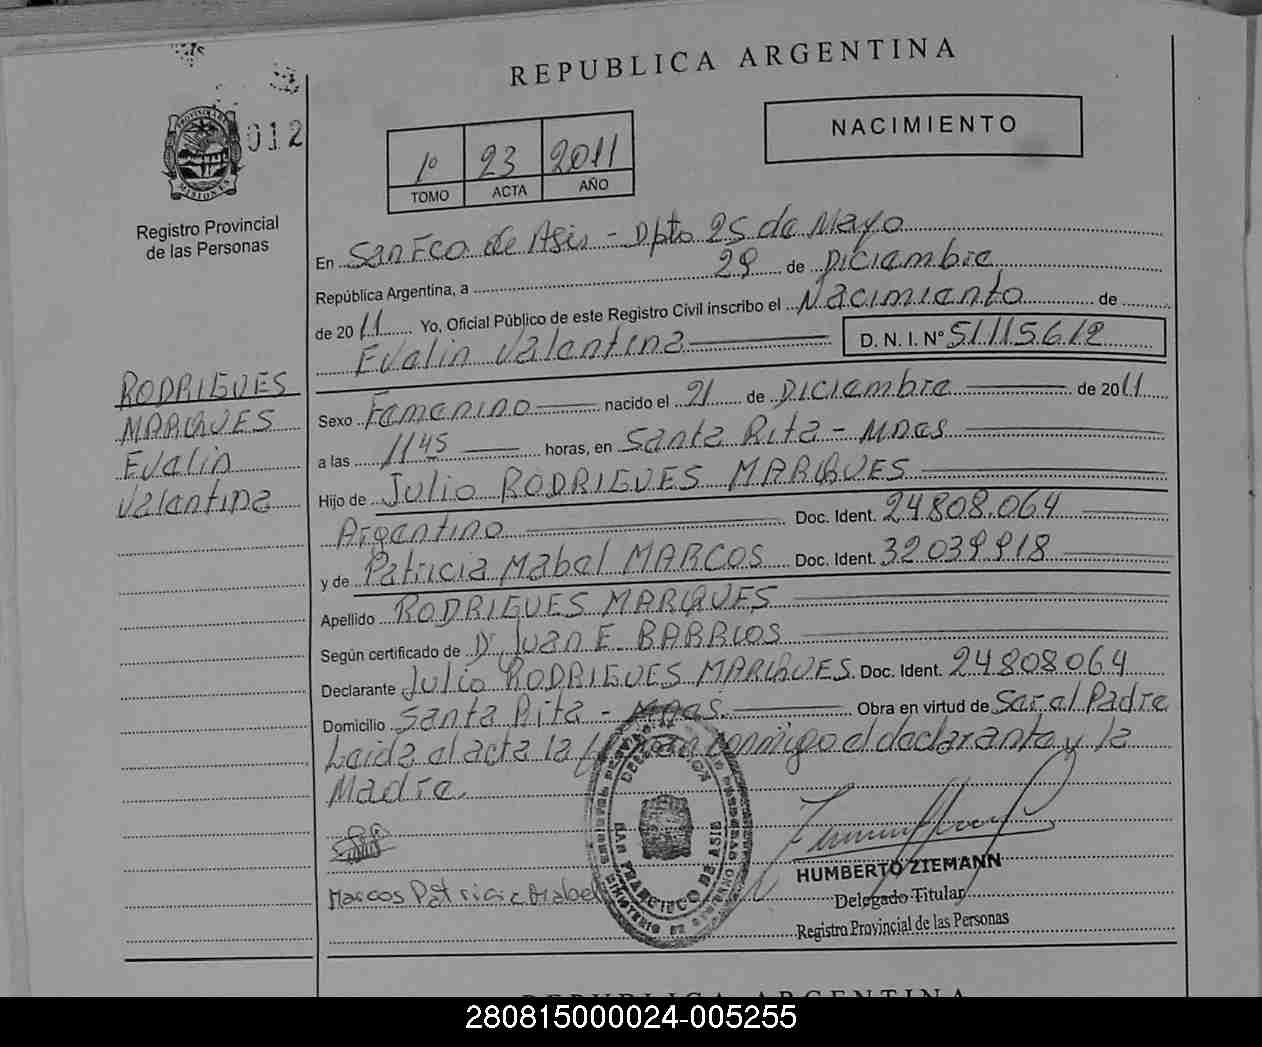 REPUBLICA ARGENTINA
NACIMIENTO
012
1º 23 2011
TOMO ACTA AÑO
PROVINCIA DE
MISIONES
Registro Provincial
de las Personas
En San Fco de Asis - Dpto 25 de Mayo
República Argentina, a 29 de Diciembre
de 2011 Yo, Oficial Público de este Registro Civil inscribo el Nacimiento de
Evelin Valentina D. N. I. Nº 51.115.612
RODRIGUES
MARQUES
Evelin
Valentina
Sexo Femenino nacido el 21 de Diciembre de 2011
a las 11 45 horas, en Santa Rita - Mnes
Hijo de Julio RODRIGUES MARQUES
Argentino Doc. Ident. 24808.064
y de Patricia Mabel MARCOS Doc. Ident. 32039918
Apellido RODRIGUES MARQUES
Según certificado de Dr. Juan E. BARRIOS
Declarante Julio RODRIGUES MARQUES Doc. Ident. 24808064
Domicilio Santa Rita - Mnes. Obra en virtud de Ser el Padre
Leida el acta la conmigo el declarante y la
Madre.
Marcos Patricia Mabel
SAN FRANCISCO DE ASIS
HUMBERTO ZIEMANN
Delegado Titular
Registro Provincial de las Personas
REPUBLICA ARGENTINA
280815000024-005255